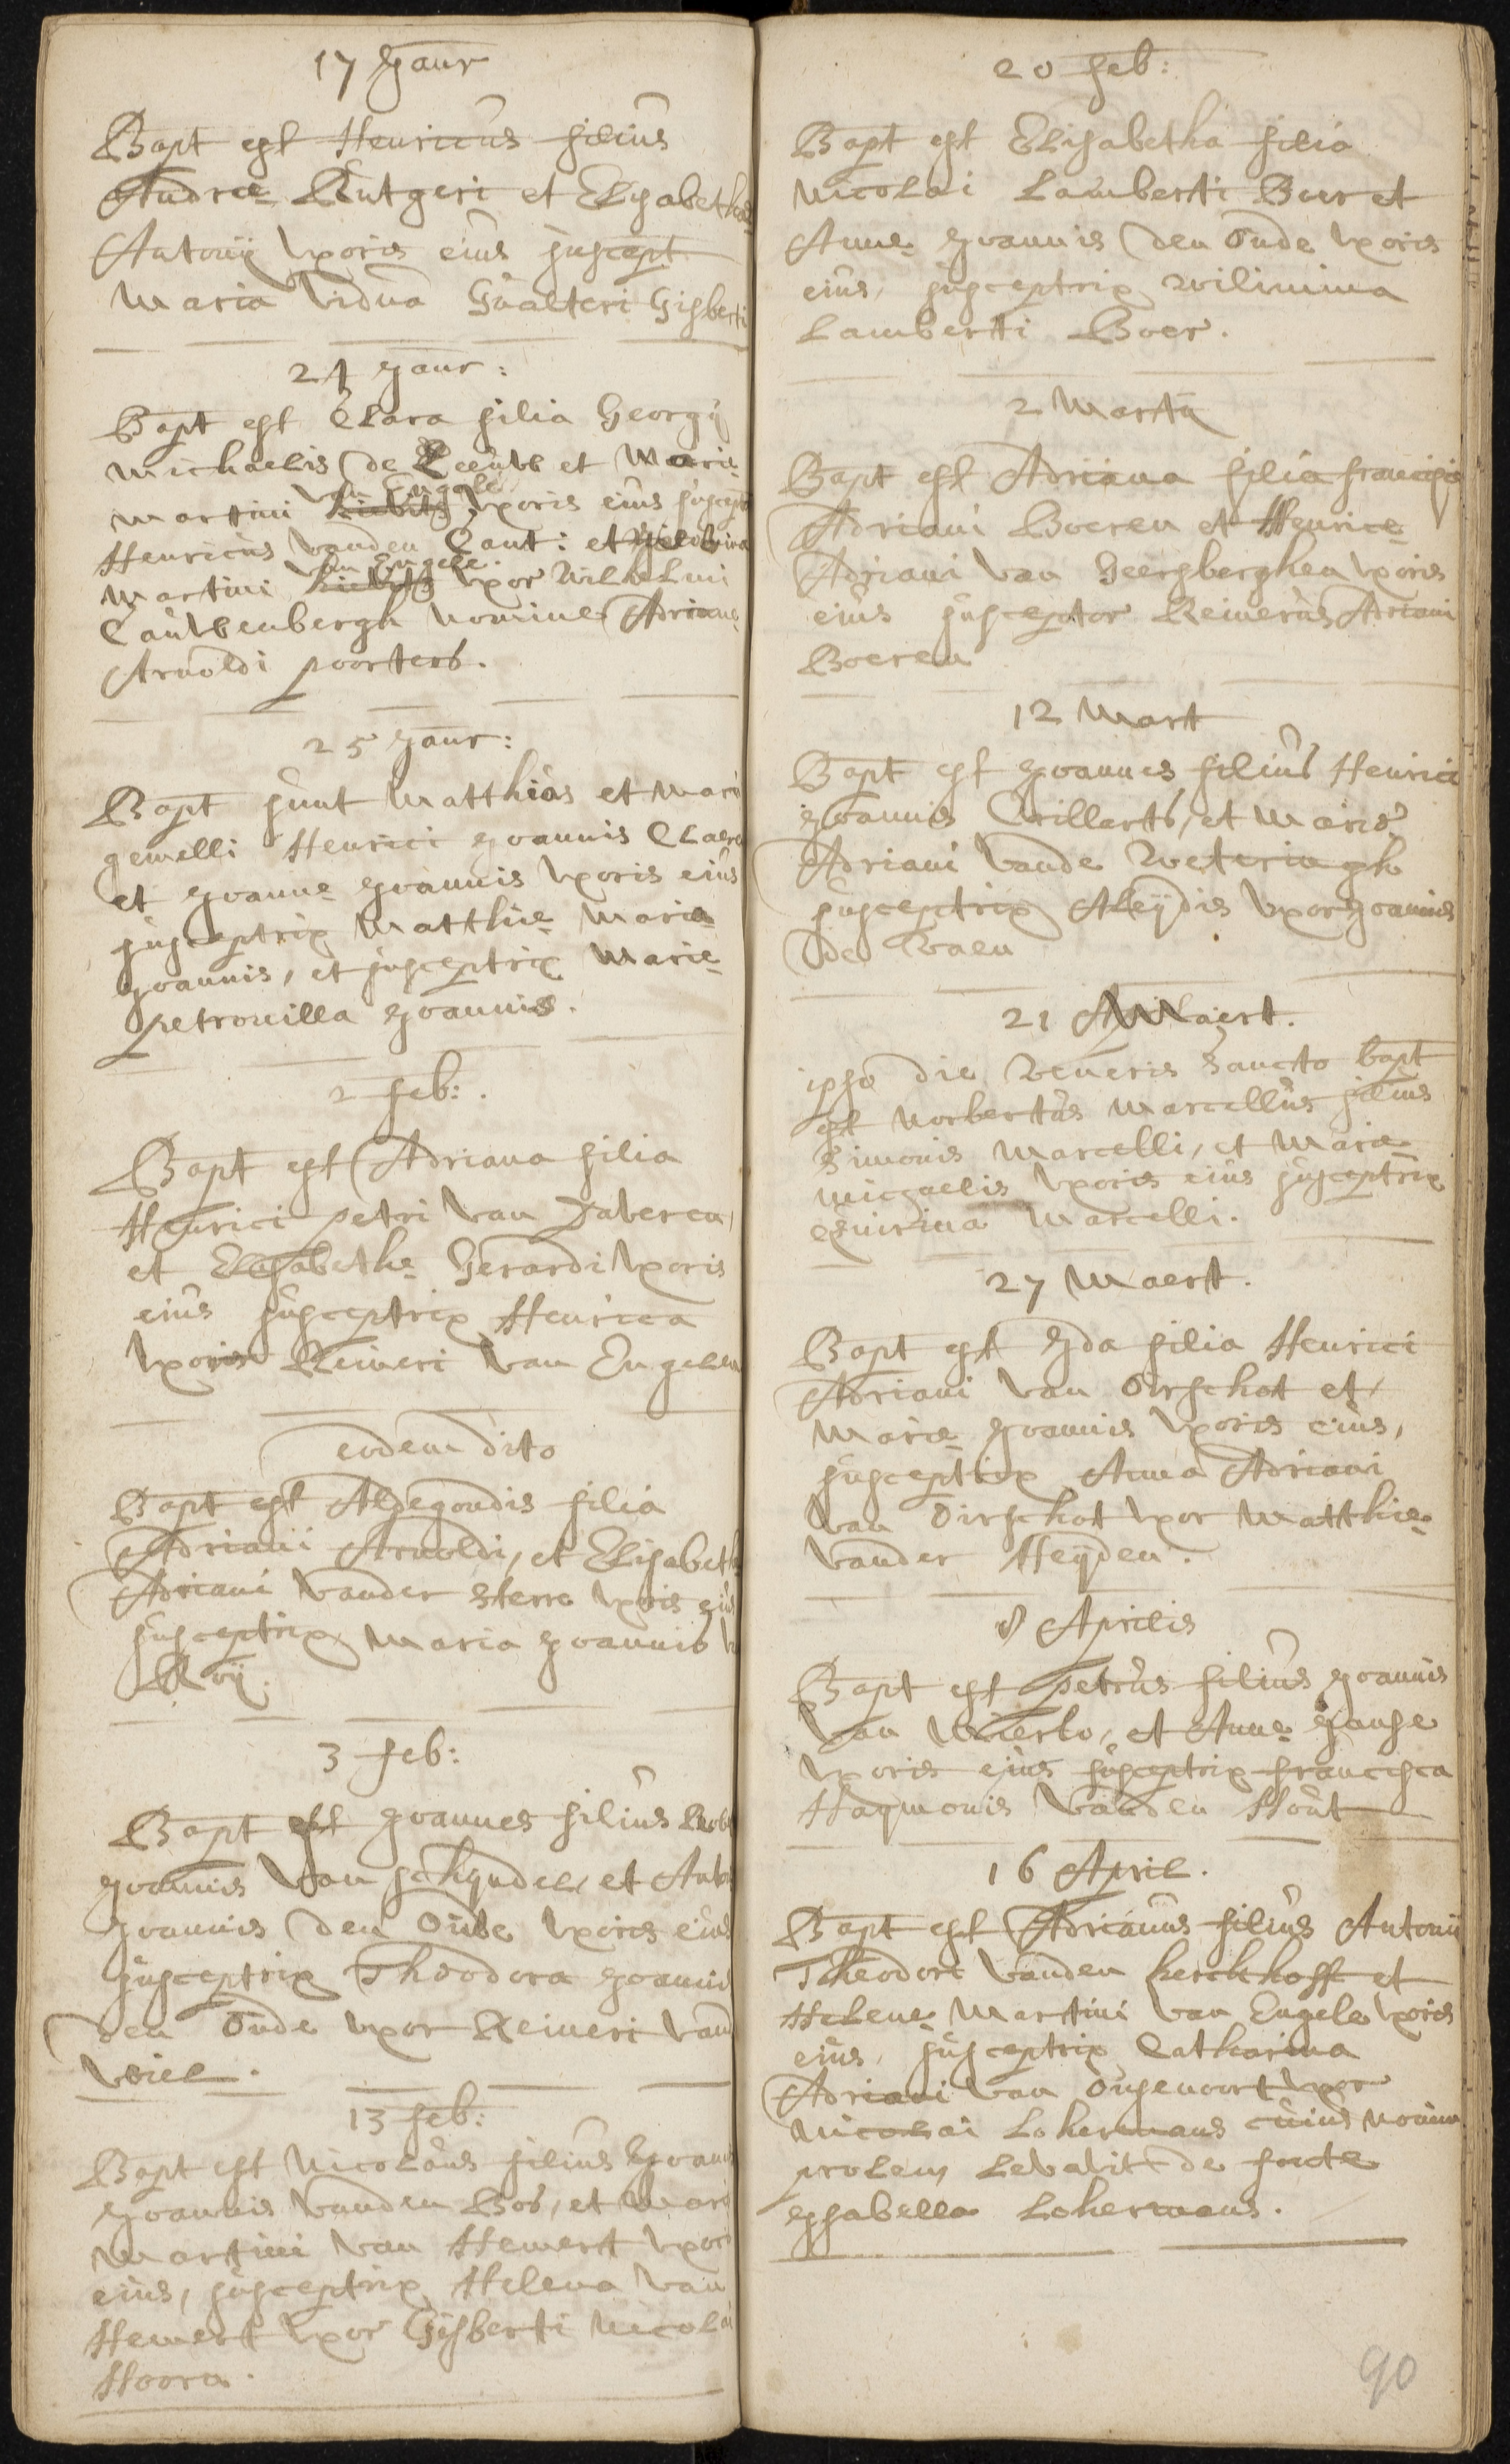 17 Janr
Bapt est Henricus filius
Andree Rutgeri et Elysabethe
Antonij uxoris eius suscept
Maria vidua Gualteri Gisberti
21 Janr:
Bapt est Clara filia Georgij
Michaelis de Leeuw et Marie
van Engele
Martini uxoris eius suscept
Henricus vanden Cant: et
van Engele
Martini uxor Wilhelmi
Couwenbergh nomine Adriane
Arnoldi poorters.
25 Janr:
Bapt sunt Matthias et Mari
gemelli Henrici Joannis Claere
et Joanne Joannis uxoris eius
susceptrix Matthie Maria
Joannis, et susceptrix Marie
petronilla Joannis.
2 feb:.
Bapt est Adriana filia
Henrici petri van
et Elisabethe Gerardi uxoris
eius susceptrix Henrica
uxoris Reineri van Engelen
eodem dito
Bapt est Aldegondis filia
Adriani Arnoldi, et Elisabeth
Adriani vander Sterre uxoris eius
susceptrix Maria Joannis v
Roij.
3 feb:
Bapt est Joannes filius
Joannis van schijndel, et Anto
Joannis den Oude uxoris eius
susceptrix Theodora Joannis
den Oude uxor Reineri vand
Wiel.
13 feb:
Bapt est Nicolaus filius Joann
Joannis vanden Bos, et Mari
Martini van Hemert uxor
eius, susceptrix Helena van
Hemert uxor Gisberti Nicolai
Hoorn.
20 feb:
Bapt est Elisabetha filia
Nicolai Lamberti Boer et
Anne Joannis den Oude uxoris
eius, susceptrix Wilimina
Lamberti Boer.
2 Martij
Bapt est Adriana filia francisci
Adriani Boeren et Henrice
Adriani van Geersberghen uxoris
eius susceptor Reinerus Adriani
Boeren
12 Mart
Bapt est Joannes filius Henrici
Joannis Willarts, et Marie
Adriani vande Weteringh
susceptrix Aleijdis uxor Joannis
de Waen
21 Maert.
ipso die Veneris Sancto bapt
est Norbertus Marcellus filius
Simonis Marcelli, et Marie
Michaelis uxoris eius susceptrix
Quirina Marcelli.
27 Maert.
Bapt est Ida filia Henrici
Adriani van Oirschot et
Marie Joannis uxoris eius,
susceptrix Anna Adriani
van Oirschot uxor Matthie
vander Heijden.
8 Aprilis
Bapt est petrus filius Joannis
van Mierlo, et Anne Janse
uxoris eius susceptrix francisca
Haymonis vanden Hout
16 April.
Bapt est Adrianus filius Antonij
Theodori vanden kerckhoff et
Helene Martini van Engele uxoris
eius, susceptrix Catharina
Adriani van Ousenoort uxor
Nicolai Lohermans cuius nomine
prolem levavit de fonte
Isabella Lohermans.
90